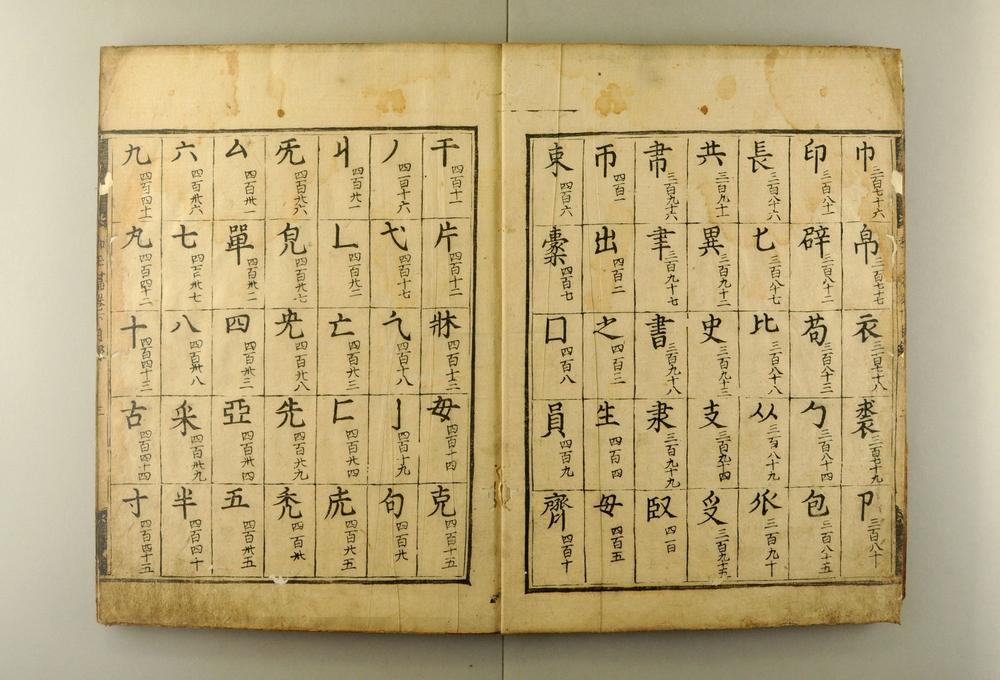 巾三百七十六
帛三百七十七
衣三百七十八
裘三百七十九
卩三百八十
印三百八十一
辟三百八十二
茍三百八十三
勹三百八十四
包三百八十五
長三百八十六
匕三百八十七
比三百八十八
从三百八十九
㐺三百九十
共三百九十一
異三百九十二
史三百九十三
支三百九十四
𠬪三百九十五
帇三百九十六
聿三百九十七
書三百九十八
隶三百九十九
臤四百
帀四百一
出四百二
之四百三
生四百四
毋四百五
束四百六
㯻四百七
囗四百八
員四百九
齊四百十
干四百十一
片四百十二
牀四百十三
毋四百十四
克四百十五
丿四百十六
弋四百十七
四百十八
亅四百十九
句四百卄
丩四百卄一
乚四百卄二
亡四百卄三
匚四百卄四
四百卄五
旡四百卄六
皃四百卄七
四百卄八
先四百卄九
禿四百卅
厶四百卅一
單四百卅二
四四百卅三
亞四百卅四
五四百卅五
六四百卅六
七四百卅七
八四百卅八
釆四百卅九
半四百四十
九四百四十一
丸四百四十二
十四百四十三
古四百四十四
寸四百四十五